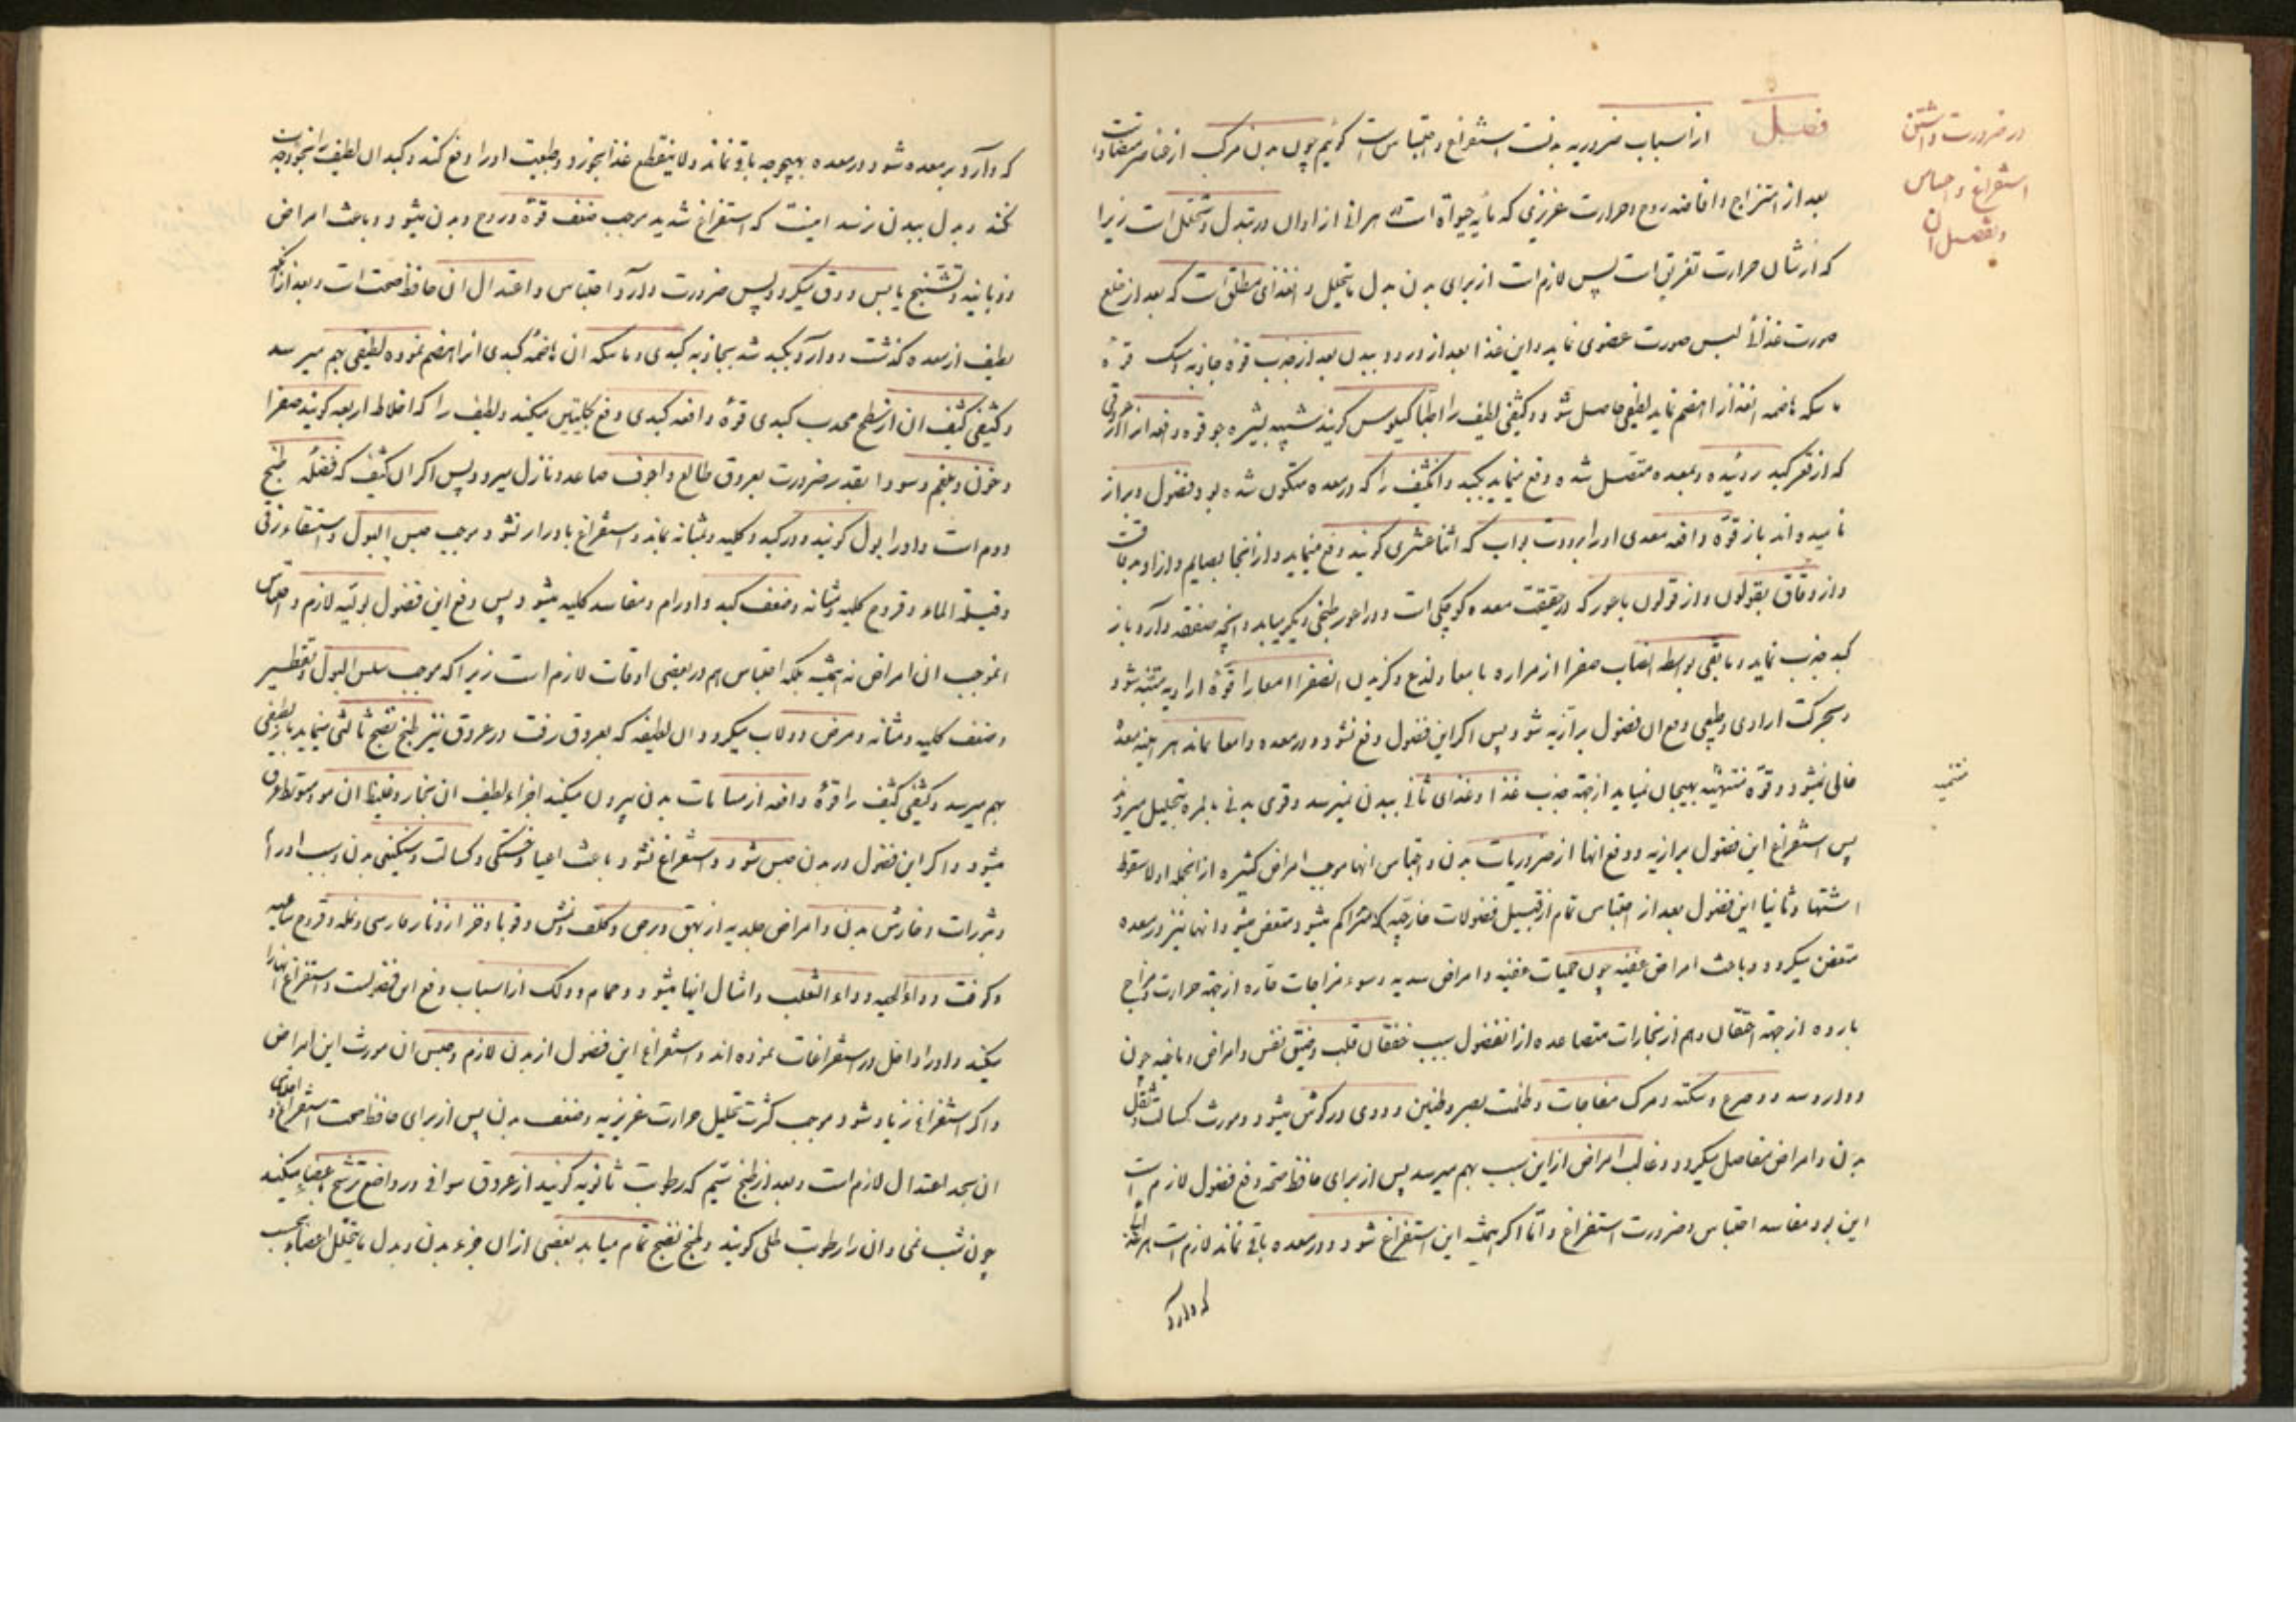 فصل از اسباب ضروریه بدنست استفراغ و احتباس است کوئیم چون بدن مرکب از عناصر متضاده است
بعد از امتزاج و افاضه روح و حرارت غریزی که مایه حیوة است هر انی از اوان در تبدل و تحلل است زیرا
که از شان حرارت تفریق است پس لازم است از برای بدن بدل ما یتحلل و غذای مطلق است که بعد از خلع
صورت غذائی لبس صورت عضوی نماید و این غذا بعد از ورود ببدن بعد از جذب قوه جاذبه قوه
ماسکه هاضمه انغذا را هضم نماید لطیفی حاصل شود و کثیفی لطیف را اطبا کیلوس کویند شبیه بشیره جو قوه دافعه از
که از قعر کبد روئیده و بمعده متصل شده دفع مینماید بکبد و انکثیف را که در معده متکون شده بود فضول و براز
نامیده اند باز قوه دافعه معدی اورا برودت بواب که اثنا عشری کویند دفع مینماید و از انجا بصایم و از او بدقاق
و از دقاق بقولون و از قولون باعور که در حقیقت معده کوچکی است و در اعور طبخی دیکر مییابد و انچه وارد باز
کبد جذب نماید و مابقی بواسطه انصباب صفرا از مراره بامعا و لذع و کزیدن انصفرا امعا را قوه ارادیه متنبه شود
و بحرکت ارادی و طبیعی دفع ان فضول برازیه شود پس اکر این فضول دفع نشود و در معده و امعا بماند هر اینه معده
خالی نمیشود و قوه مشتهیه بهیجان نیاید از جهة جذب غذا و غذای ثانی ببدن نمیرسد و قوی بدنی بالمره بتحلیل میرود
پس استفراغ این فضول برازیه و دفع انها از ضروریات بدن و احتباس انها موجب امراض کثیره از انجمله اولا سقوط
اشتها و ثانیا این فضول بعد از احتباس تمام از قبیل فضولات خارجیه که متراکم میشود متعفن میشود انها نیز در معده
متعفن میکردد و باعث امراض عفنیه چون حمیات عفنیه و امراض سدیه و سوء مزاجات حاره از جهة حرارت و مزاج
بارده از جهة احتقان و هم از بخارات متصاعده از انفضول سبب خفقان قلب و ضیق نفس و امراض دماغیه چون
دوار و سدد و صرع و سکته و مرک مفاجات و ظلمت بصر و طنین و دوی در کوش میشود و مورث کسالت و ثقل
بدن و امراض مفاصل میکردد و غالب امراض از این سبب بهم میرسد پس از برای حافظ صحة دفع فضول لازم است
این بود مفاسد احتباس و ضرورت استفراغ و اما اکر همیشه این استفراغ شود و در معده باقی نماند لازم است
که وارد
در ضرورت داشتن
استفراغ و احتباس
و تفصیل ان
که وارد بر معده شود در معده بهیچوجه باقی نماند و لا ینقطع غذا بخورد و طبیعت اورا دفع کند و کبد ان لطیف را
نکند و بدل ببدن نرسد اینست که استفراغ شدید موجب ضعف قوه و روح و بدن میشود و باعث امراض
ذوبانیه و تشنج یابس و دق میکردد پس ضرورت دارد احتباس و اعتدال ان حافظ صحت است و بعد از انکه
لطیف از معده کذشت و وارد کبد شد بجاذبه کبدی و ماسکه ان هاضمه کبدی انرا هضم نموده لطیفی بهم میرسد
و کثیفی کثیف ان از سطح محدب کبدی قوه دافعه کبدی دفع بکلیتین میکند و لطیف را که اخلاط اربعه کویند صفرا
و خون و بلغم و سودا بقدر ضرورت بعروق طالع و اجوف صاعد و نازل میرود پس اکر ان کثیف که فضله طبخ
دوم است و اورا بول کویند در کبد و کلیه و مثانه بماند و استفراغ بادرار نشود موجب حبس البول و استسقاء زقی
و قیلة الماء و قروح کلیه و مثانه و ضعف کبد و اورام و مفاسد کلیه میشود پس دفع این فضول بولیه لازم و احتباس
موجب ان امراض نه همیشه بلکه احتباس هم در بعضی اوقات لازم است زیرا که موجب سلس البول و تقطیر
و ضعف کلیه و مثانه و مرض دولاب میکردد و ان لطیفه که بعروق رفت در عروق نیز طبخ نضج ثالثی مینماید باز لطیفی
بهم میرسد و کثیفی کثیف را قوه دافعه از مسامات بدن بیرون میکند اجزاء لطیف ان بخار و غلیظ ان مو و سوم عرق
میشود و اکر این فضول در بدن حبس شود و استفراغ نشود باعث اعیا و خستکی و کسالت و سنکینی بدن و سبب اورام
و بثورات و خارش بدن و امراض جلدیه از بهق و برص و کلف و نمش و قوبا و حزاز و نار فارسی و نمله و قروح ساعیه
و داء الحیه و داء الثعلب و امثال اینها میشود و حمام و دلک از اسباب دفع این فضولست و استفراغ انها را
میکند و اورا داخل در استفراغات نموده اند و استفراغ این فضول از بدن لازم و حبس ان مورث این امراض
و اکر استفراغ زیاد شود موجب کثرت تحلیل حرارت غریزیه و ضعف بدن پس از برای حافظ صحت استفراغ و احتباس
ان بحد اعتدال لازم است و بعد از طبخ سیم که رطوبت ثانویه کویند از عروق سواقی در مواضع ترشح باعضاء میکند
چون شب نمی و ان را رطوبت طلی کویند و طبخ نضج تمام مییابد بعضی از ان جزء بدن و بدل ما یتحلل اعضاء